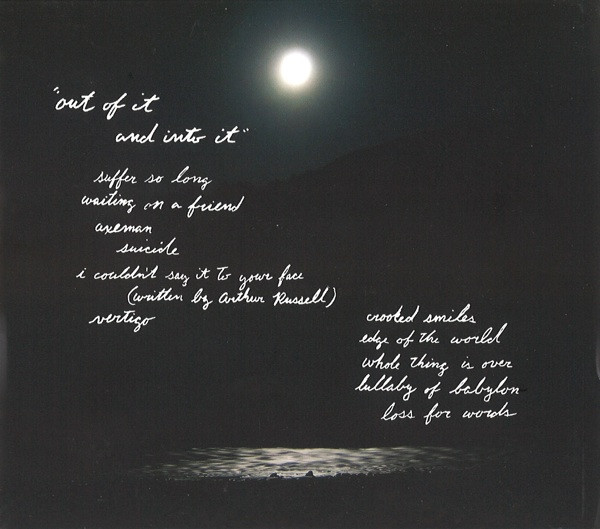 "out of it
and into it"
suffer so long
waiting on a friend
axeman
suicide
i couldn't say it to your face
(written by Arthur Russell)
vertigo
crooked smiles
edge of the world
whole thing is over
lullaby of babylon
loss for words